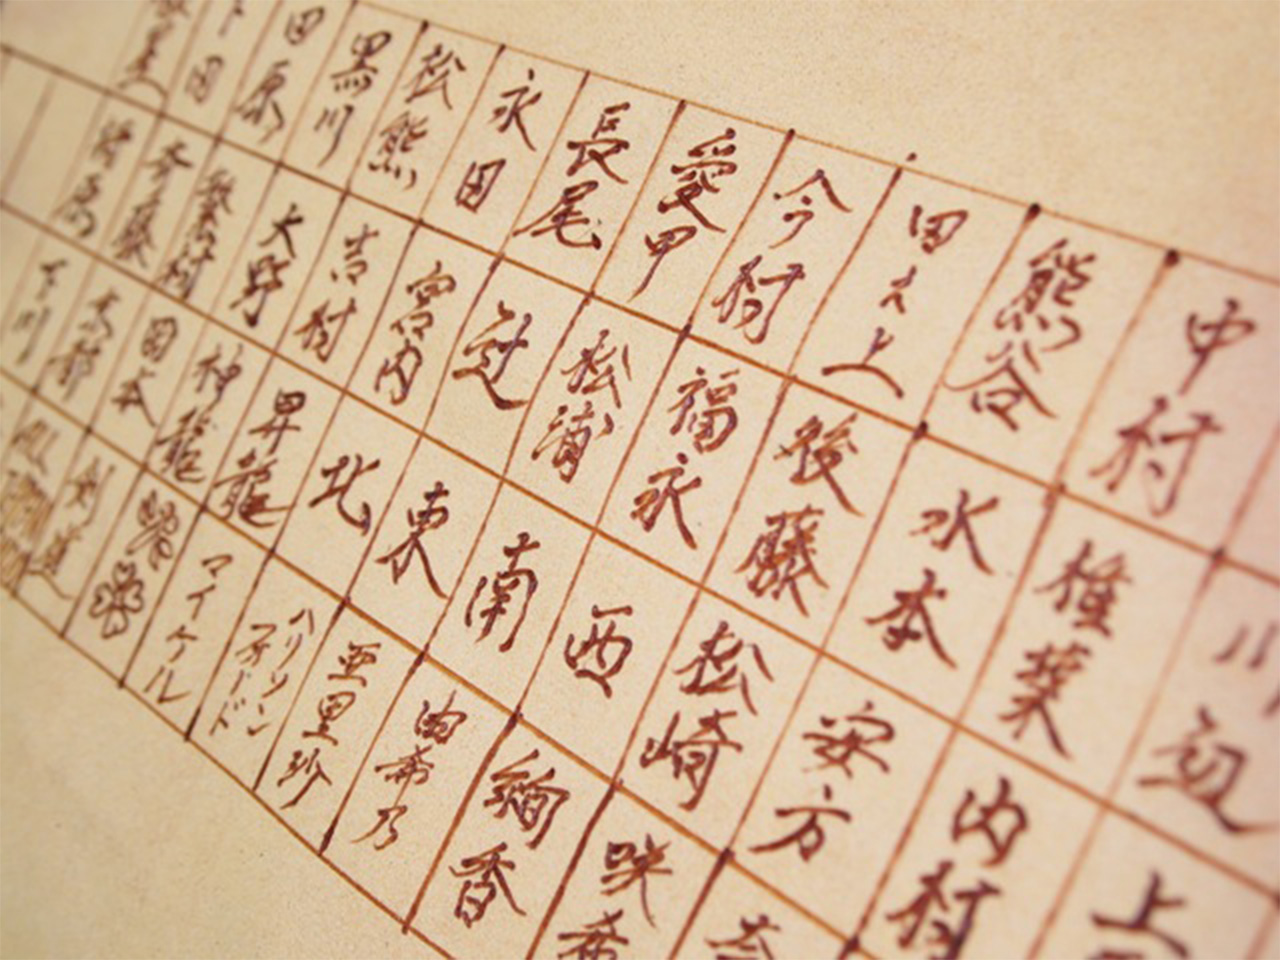 中村
熊谷
田上
今村
愛甲
長尾
永田
松熊
黒川
田原
川辺
椎葉
水本
後藤
福永
松浦
辻
宮内
吉村
大野
繁村
斉藤
上
内村
安方
松崎
西
南
東
北
昇龍
神龍
田本
咲希
絢香
由希乃
亜里沙
ハリソン
フォード
マイケル